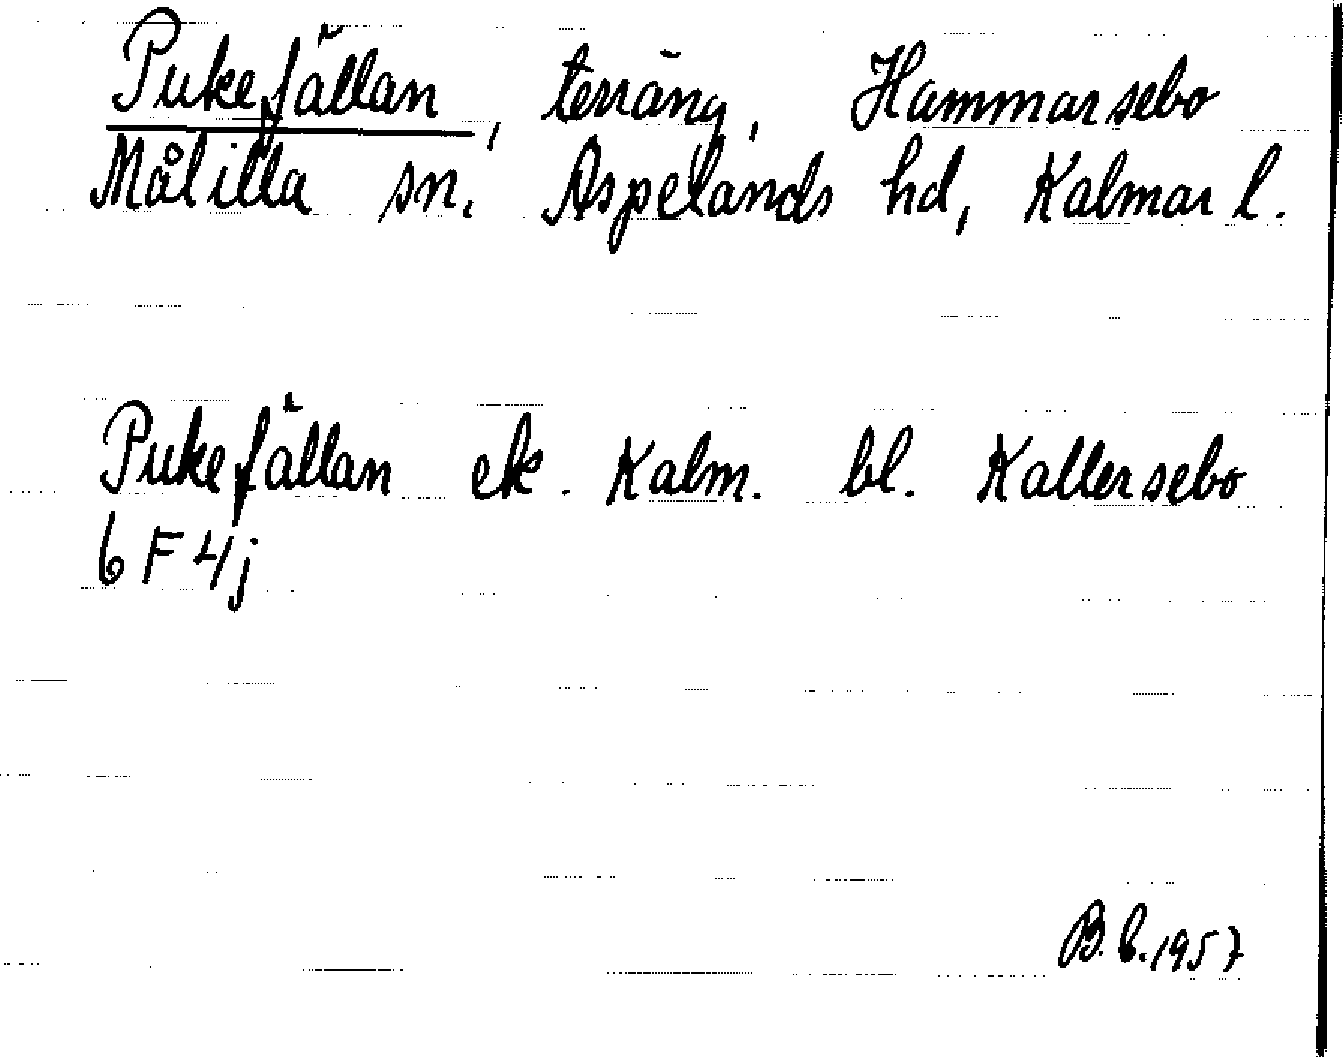 Pukefällan, terräng, Hammarsebo
Målilla sn. Aspelands hd, Kalmar l.
Pukefällan ek. Kalm. bl. Kallersebo
6 F 4j
B.b.1957